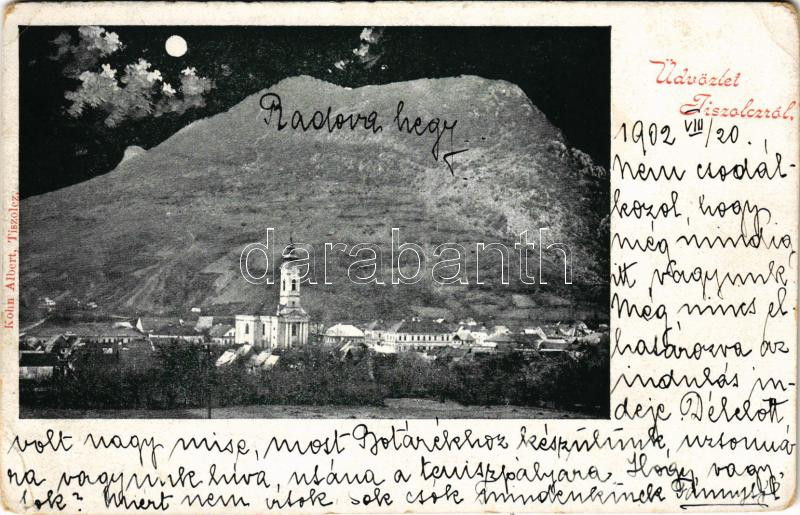 Üdvözlet
Tiszolczról.
Radova hegy
Kohn Albert, Tiszolcz.
darabanth
1902 VIII/20.
nem csodál-
kozol, hogy
még mindig
itt vagyunk
Még nincs el-
határozva az
indulás in-
deje. Délelőtt
volt nagy mise, most Botárékhoz készülünk, uzsonná
ra vagyunk híva, utána a teniszpályára. Hogy vagy-
tok? miért nem írtok sok csók mindenkinek